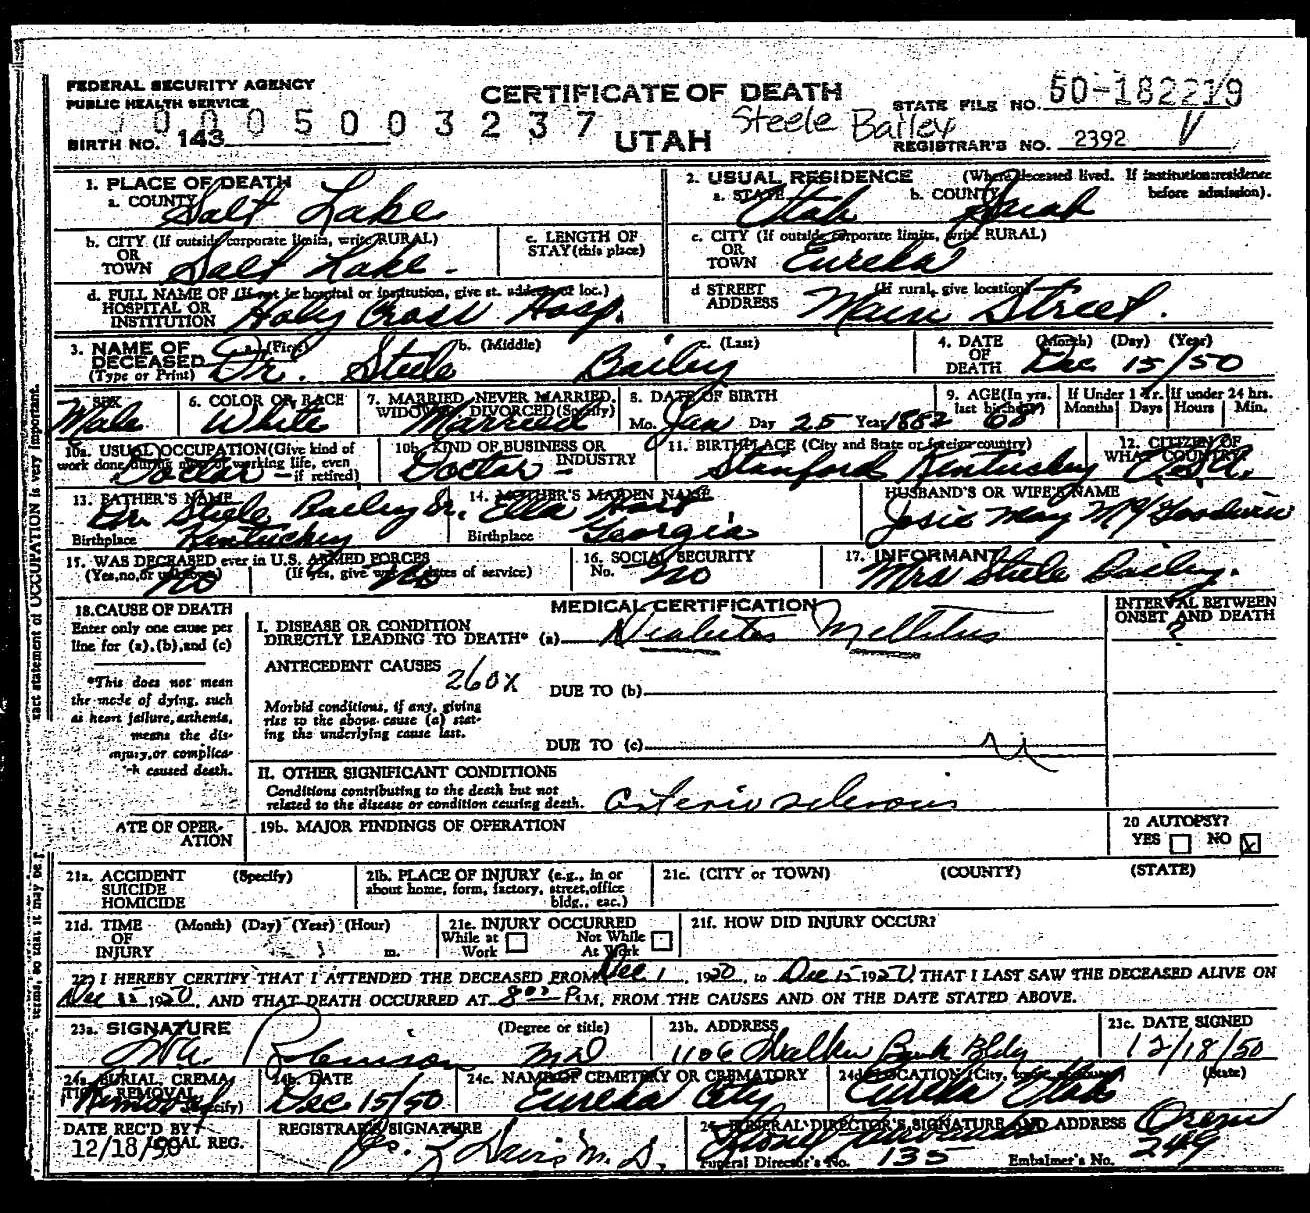 FEDERAL SECURITY AGENCY
PUBLIC HEALTH SERVICE
CERTIFICATE OF DEATH
STATE FILE NO. 50-182219
7 0 0 0 5 0 0 3 2 3 7
Steele Bailey
BIRTH NO. 143
UTAH
REGISTRAR'S NO. 2392
1. PLACE OF DEATH
a. COUNTY Salt Lake
2. USUAL RESIDENCE (Where deceased lived. If institution: residence before admission).
a. STATE Utah b. COUNTY
b. CITY (If outside corporate limits, write RURAL) OR TOWN Salt Lake.
c. LENGTH OF STAY (this place)
c. CITY (If outside corporate limits, write RURAL) OR TOWN Eureka
d. FULL NAME OF (If not in hospital or institution, give st. address or loc.) HOSPITAL OR INSTITUTION Holy Cross Hosp.
d STREET ADDRESS (If rural, give location) Main Street.
3. NAME OF DECEASED (Type or Print) a. (First) b. (Middle) c. (Last)
Dr. Steele Bailey
4. DATE OF DEATH (Month) (Day) (Year)
Dec 15/50
5. SEX Male
6. COLOR OR RACE White
7. MARRIED, NEVER MARRIED, WIDOWED, DIVORCED (Specify) Married
8. DATE OF BIRTH
Mo. Jan Day 25 Year 1882
9. AGE (In yrs. last birthday) 68
If Under 1 Yr. Months Days
If under 24 hrs. Hours Min.
10a. USUAL OCCUPATION (Give kind of work done during most of working life, even if retired) Doctor
10b. KIND OF BUSINESS OR INDUSTRY Doctor
11. BIRTHPLACE (City and State or foreign country) Stanford Kentuckey
12. CITIZEN OF WHAT COUNTRY U.S.A.
13. FATHER'S NAME Dr. Steele Bailey Sr.
Birthplace Kentuckey
14. MOTHER'S MAIDEN NAME Ella
Birthplace Georgia
HUSBAND'S OR WIFE'S NAME
Josie May McGoodwin
15. WAS DECEASED ever in U.S. ARMED FORCES
(Yes, no, or unknown) No (If yes, give war or dates of service) No
16. SOCIAL SECURITY No. No
17. INFORMANT
Mrs Steele Bailey.
18. CAUSE OF DEATH
Enter only one cause per line for (a), (b), and (c)
*This does not mean the mode of dying, such as heart failure, asthenia, means the dis- injury, or complica- h caused death.
MEDICAL CERTIFICATION
INTERVAL BETWEEN ONSET AND DEATH
?
I. DISEASE OR CONDITION DIRECTLY LEADING TO DEATH* (a) Diabetes Mellitus
ANTECEDENT CAUSES 260X
DUE TO (b)
Morbid conditions, if any, giving rise to the above cause (a) stating the underlying cause last.
DUE TO (c)
II. OTHER SIGNIFICANT CONDITIONS
Conditions contributing to the death but not related to the disease or condition causing death. arteriosclerosis
ATE OF OPER- ATION
19b. MAJOR FINDINGS OF OPERATION
20 AUTOPSY?
YES NO X
21a. ACCIDENT SUICIDE HOMICIDE (Specify)
21b. PLACE OF INJURY (e.g., in or about home, form, factory, street, office bldg., eac.)
21c. (CITY or TOWN) (COUNTY) (STATE)
21d. TIME OF INJURY (Month) (Day) (Year) (Hour) m.
21e. INJURY OCCURRED
While at Work Not While At Work
21f. HOW DID INJURY OCCUR?
22. I HEREBY CERTIFY THAT I ATTENDED THE DECEASED FROM Dec 1, 1950, to Dec 15 1950, THAT I LAST SAW THE DECEASED ALIVE ON
Dec 15 1950, AND THAT DEATH OCCURRED AT 8:00 P.M, FROM THE CAUSES AND ON THE DATE STATED ABOVE.
23a. SIGNATURE (Degree or title)
Robinson MD
23b. ADDRESS
1106 Walker Bank Bldg
23c. DATE SIGNED
12/18/50
24a. BURIAL, CREMATION, REMOVAL (Specify) Removal
24b. DATE
Dec. 15/50
24c. NAME OF CEMETERY OR CREMATORY
Eureka City
24d. LOCATION (City, town, or county) (State)
Eureka Utah
DATE REC'D BY LOCAL REG.
12/18/50
REGISTRAR'S SIGNATURE
Davis M.D.
25. FUNERAL DIRECTOR'S SIGNATURE AND ADDRESS Orem
Funeral Director's No. 135 Embalmer's No. 249
xact statement of OCCUPATION is very important.
terms, so that it may be